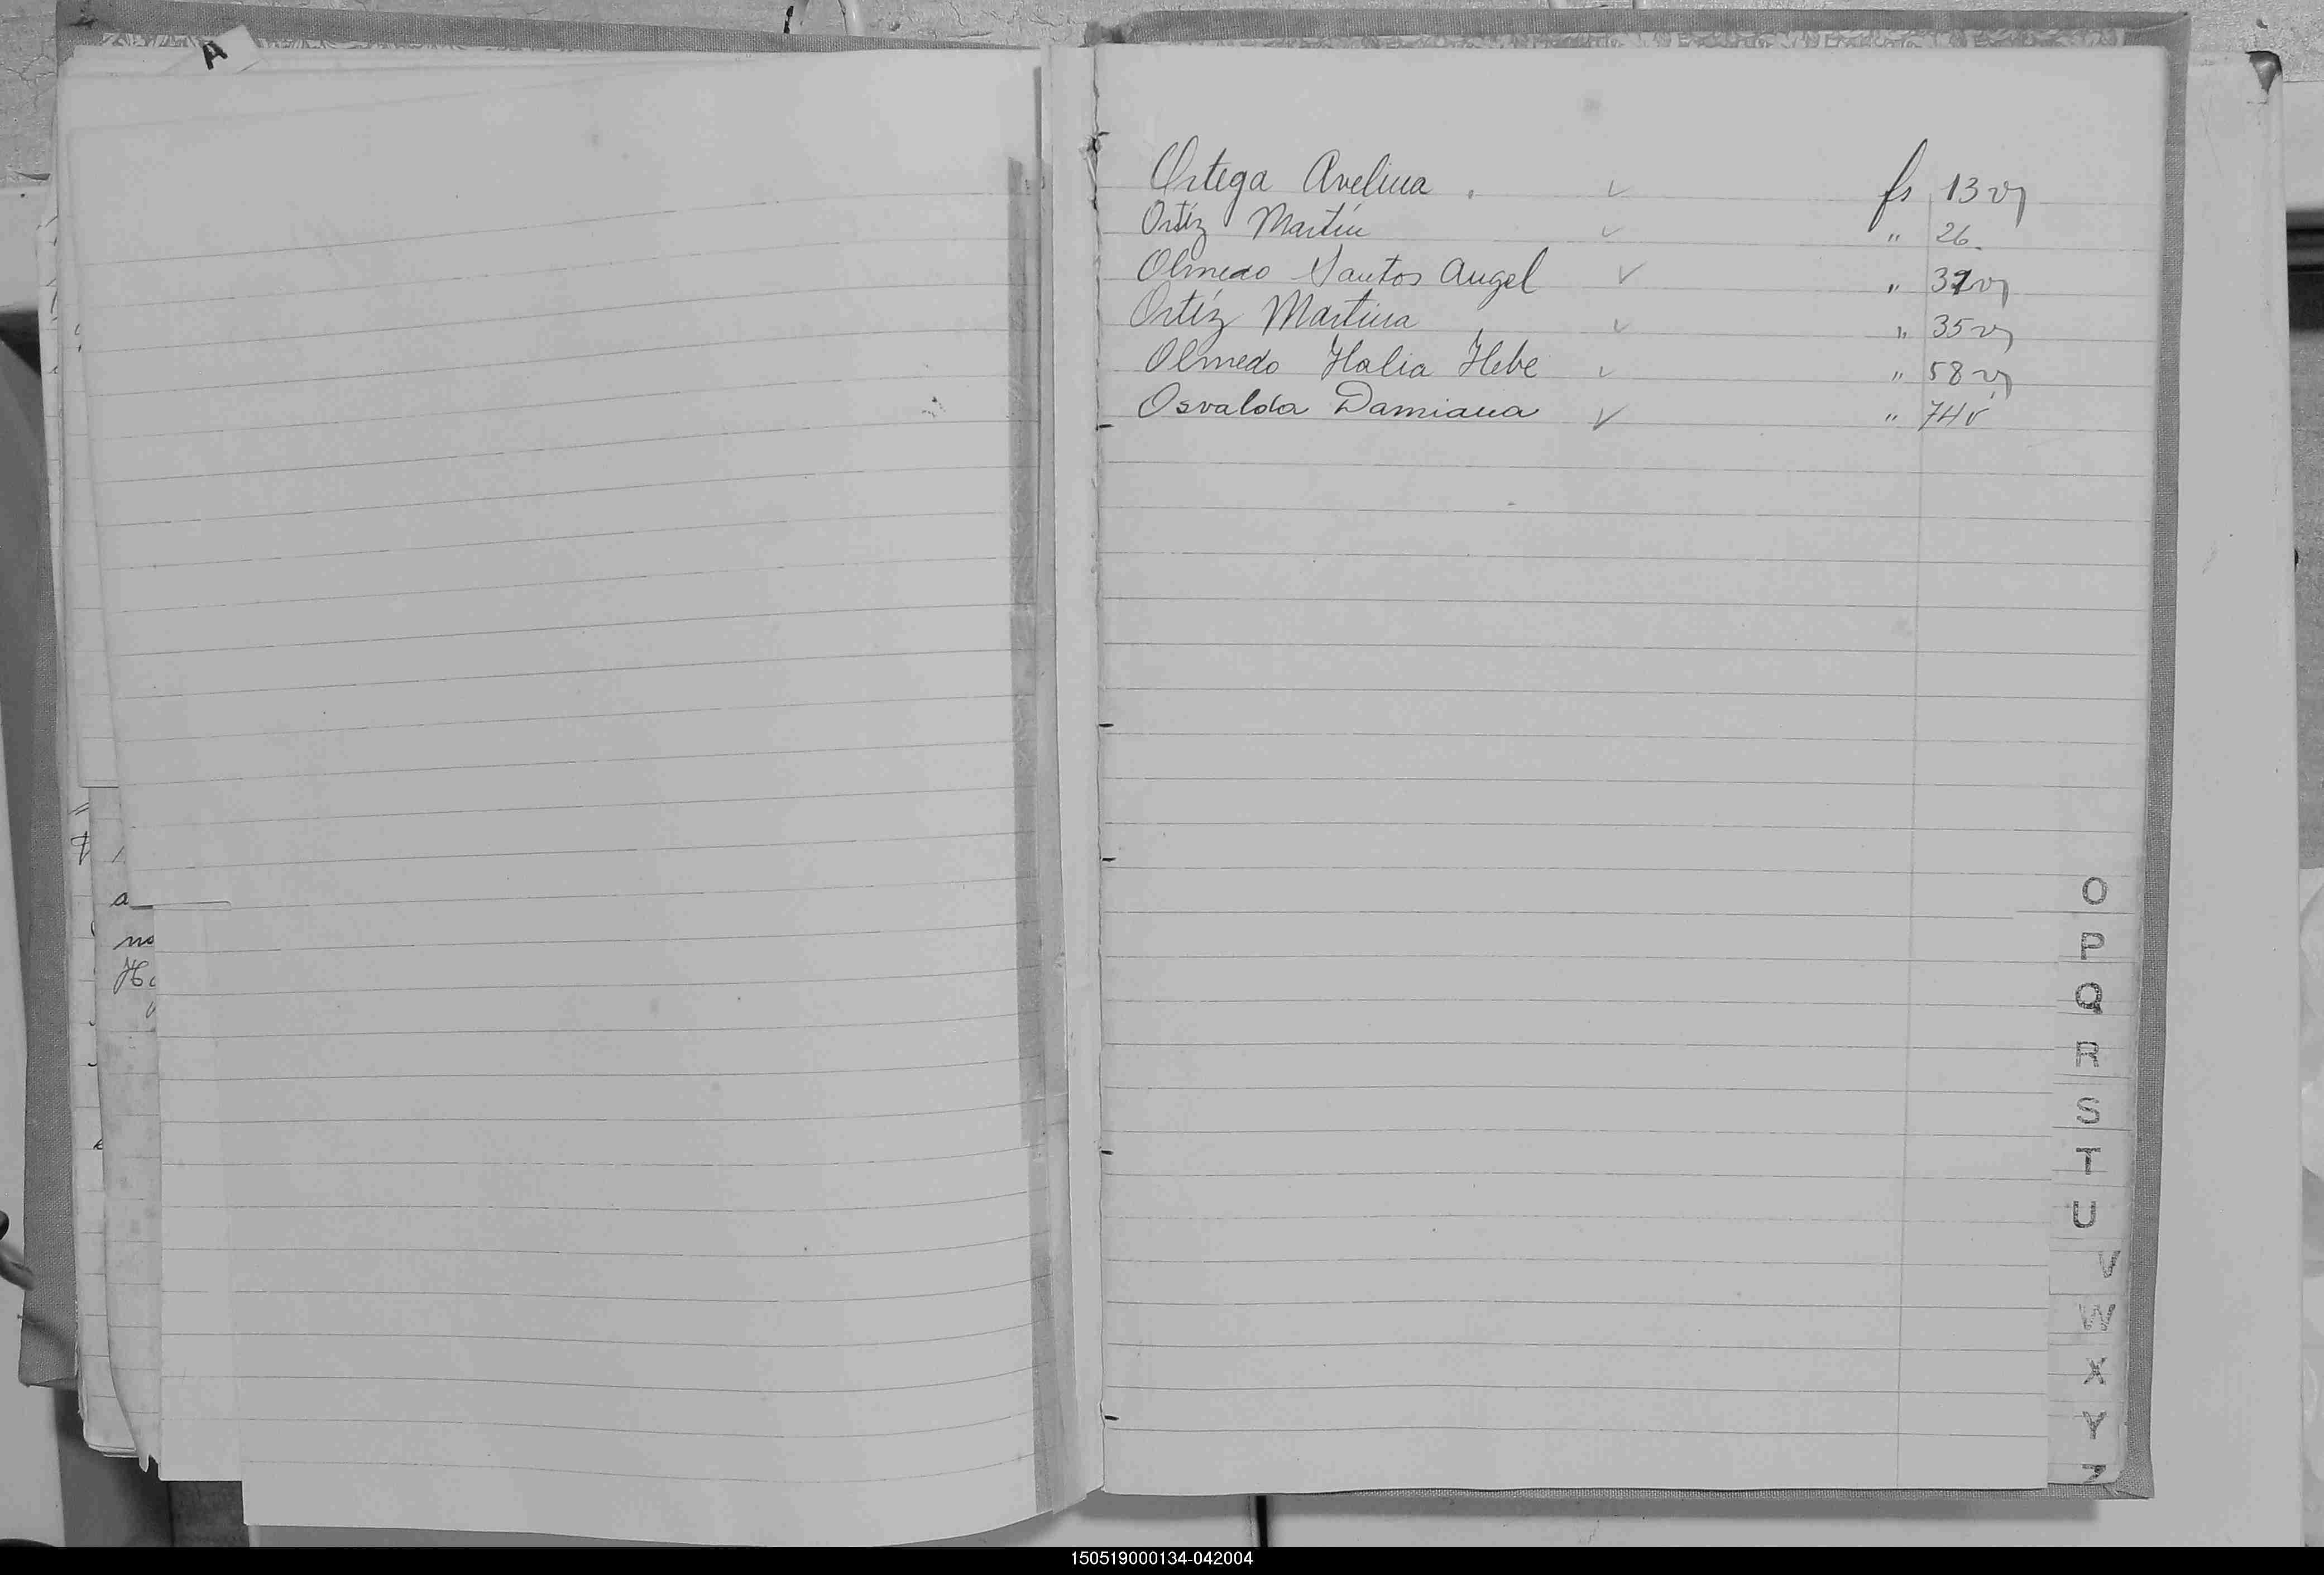 A
Ortega Avelina. ✓ fs 13 v
Ortíz Martín ✓ " 26.
Olmedo Santos Angel ✓ " 31 v
Ortíz Martina ✓ " 35 v
Olmedo Halia Hebe ✓ " 58 v
Osvalda Damiana ✓ " 74 v
a
no
O
P
Q
R
S
T
U
V
W
X
Y
Z
150519000134-042004